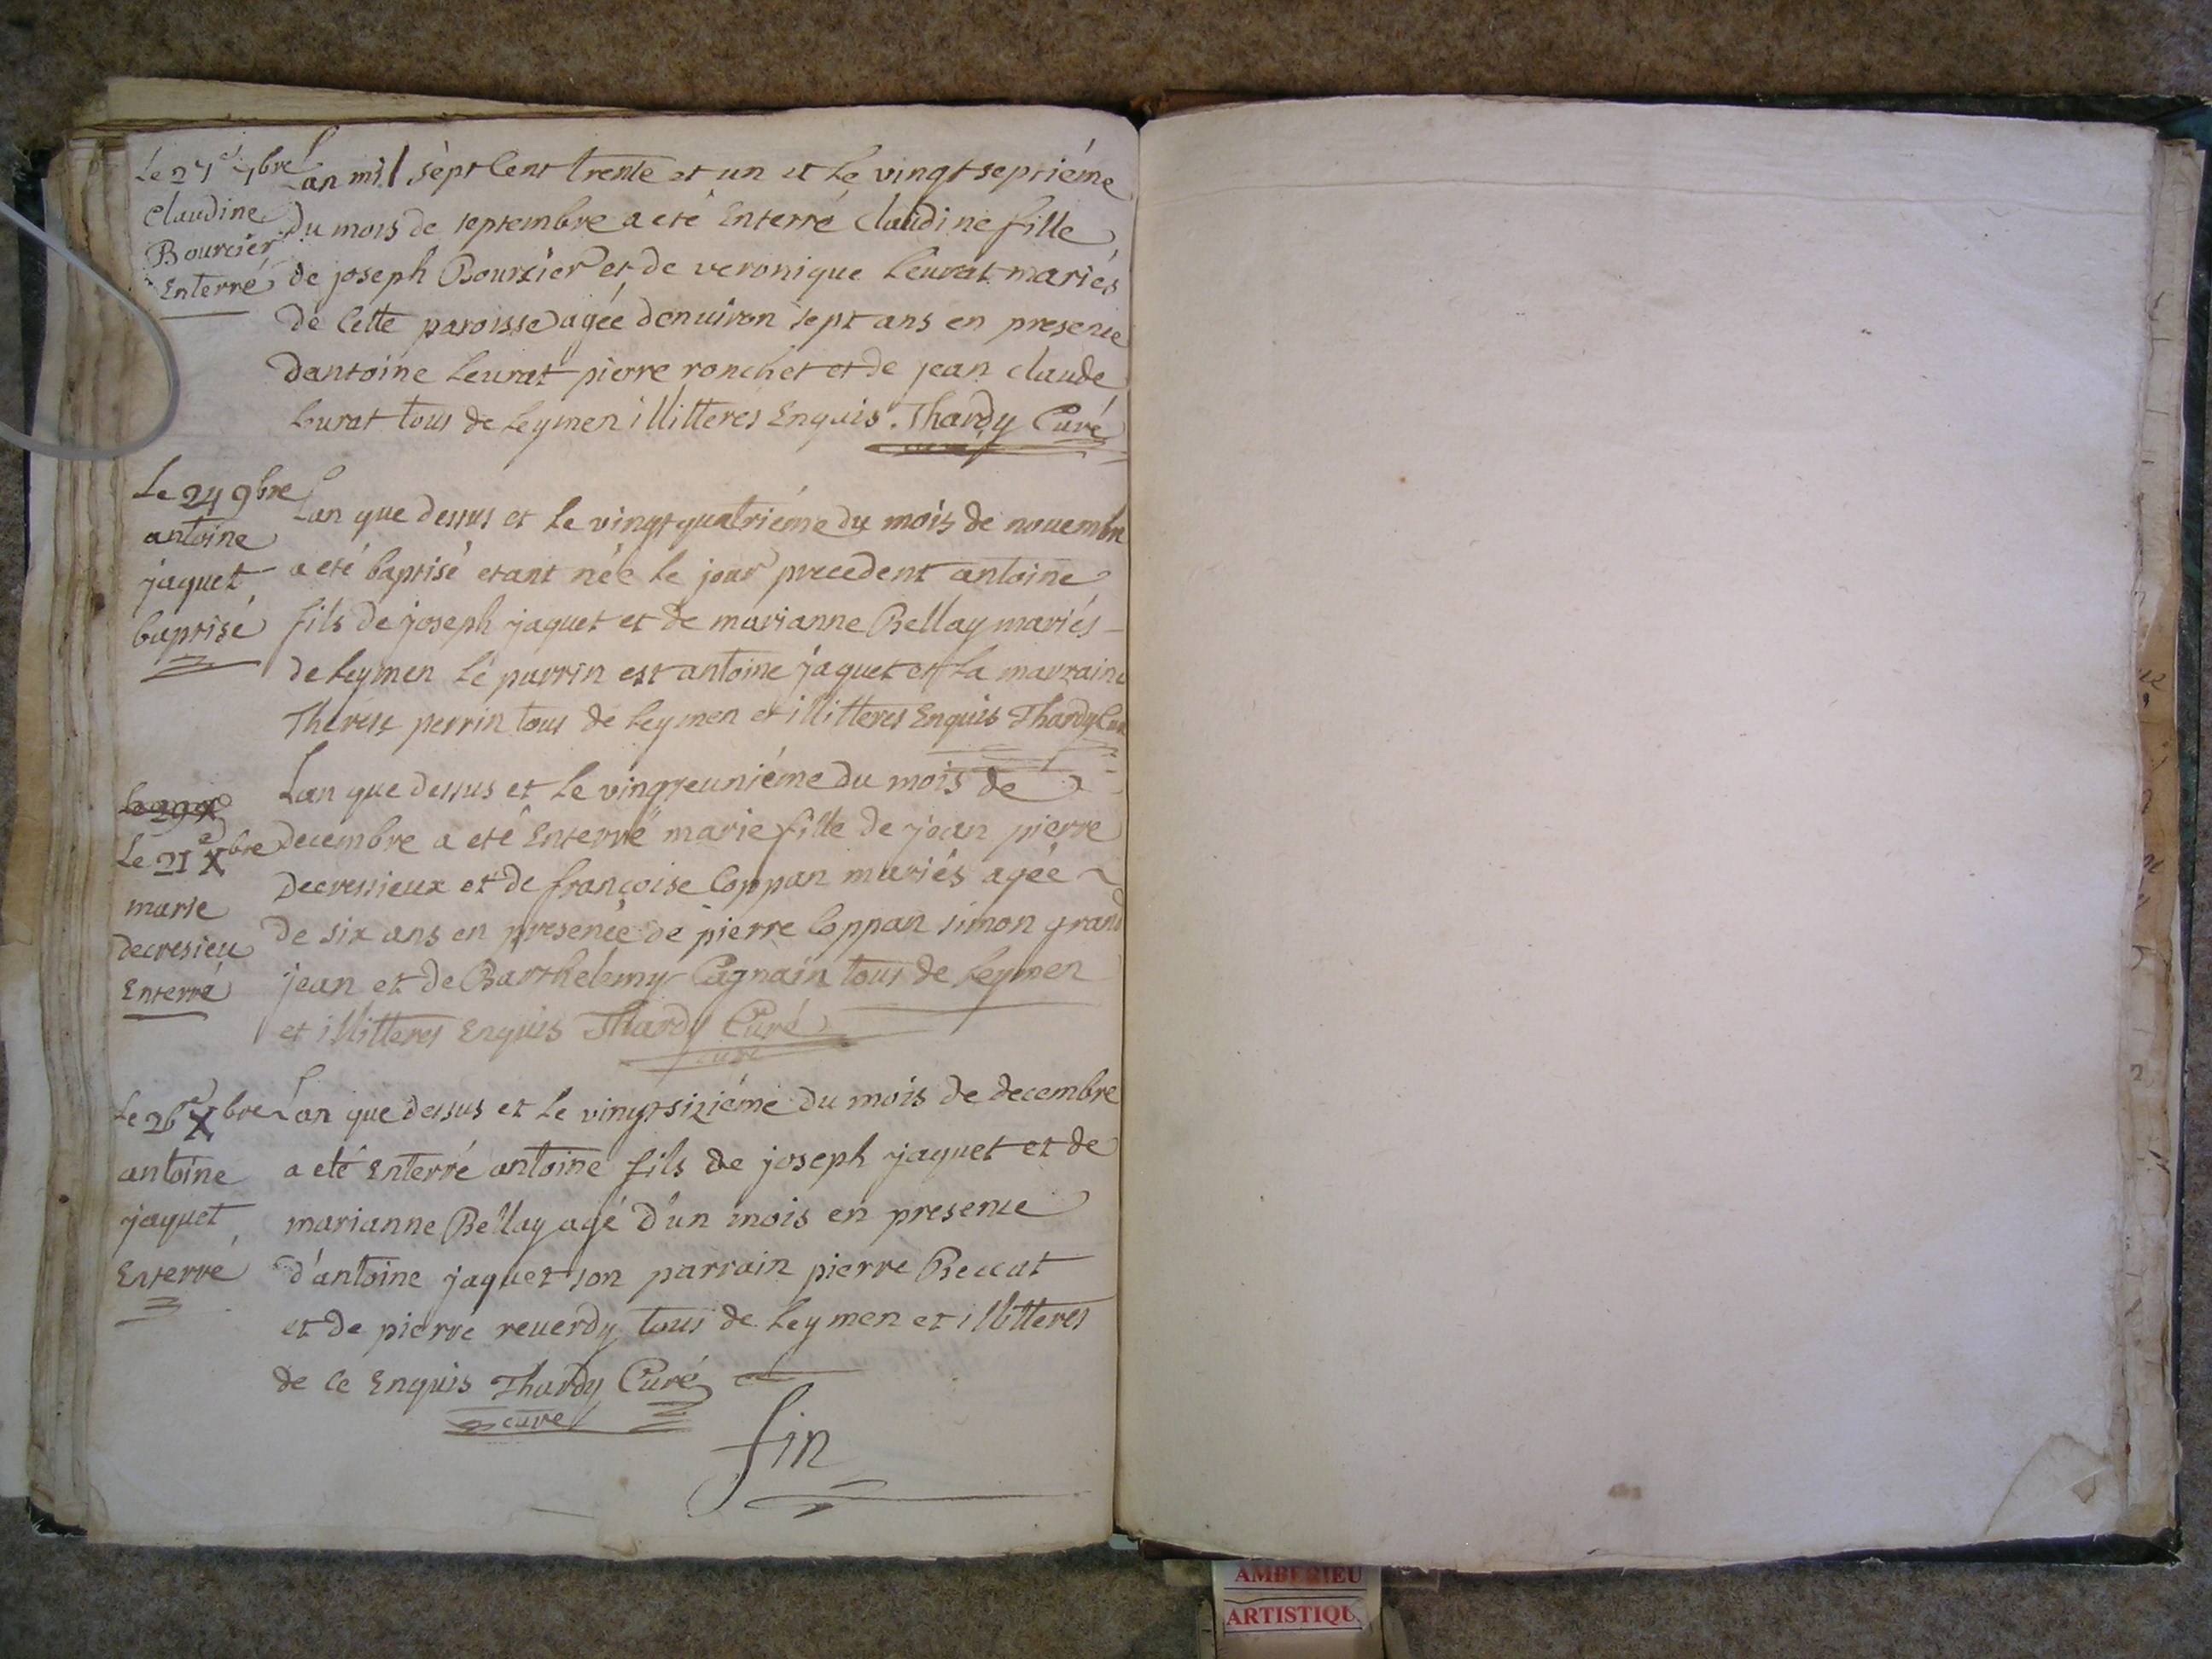 Le 27e 7bre
Claudine
Bourcier
Enterré
Lan mil sept Cent trente et un et Le vingt septiéme
du mois de septembre a eté Enterré Claudine fille
de joseph Bourcier et de veronique Leurat mariés
de Cette paroisse agée denuiron sept ans en presence
dantoine Leurat pierre ronchet et de jean claude
Leurat tous de Leymen illitterés Enquis. Thardy Curé
Le 24 9bre
antoine
jaquet
baptisé
Lan que dessus et Le vingt quatriéme du mois de nouembre
a eté baptisé etant née Le jour precedent antoine
fils de joseph jaquet et de marianne Bellay mariés
de Leymen Lé parrin est antoine jaquet et La marraine
Therese perrin tous de Leymen et illitteres Enquis Thardy Curé
Le 21e Xbre
marie
decresieu
Enterré
Lan que dessus et Le vingt eunième du mois de
decembre a eté Enterré marie fille de jean pierre
decressieux et de françoise Coppan mariés agée
de six ans en presence de pierre Coppan simon grand
jean et de Barthelemy Cagnain tous de Leymen
et illitteres Enquis Thardy Curé
curé
Le 26e Xbre
antoine
jaquet
Enterré
Lan que dessus et Le vingt siziéme du mois de decembre
a eté Enterré antoine fils de joseph jaquet et de
marianne Bellay agé d'un mois en presence
d'antoine jaquet son parrain pierre Beccat
et de pierre reuerdy tous de Leymen et illitteres
de Ce Enquis Thardy Curé
curé
fin
AMBERIEU
ARTISTIQU